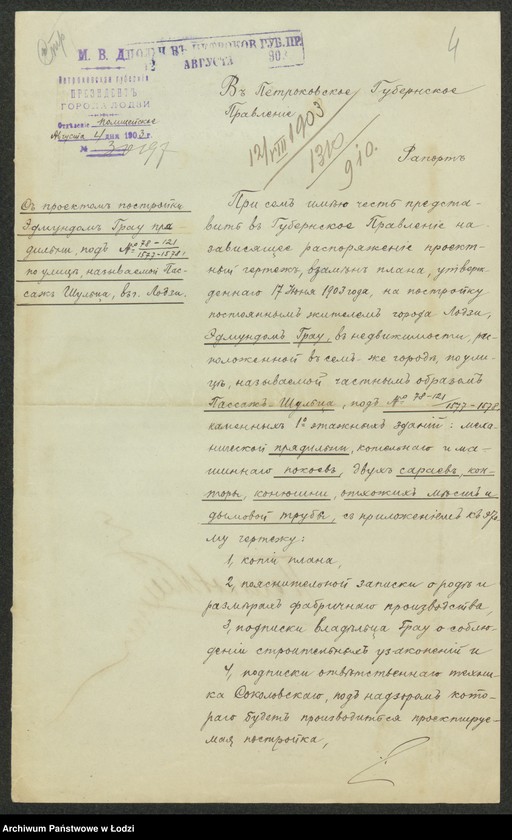 4
М. В. Д.
ПОЛУЧ. ВЪ ПЕТРОКОВ. ГУБ. ПР.
12 АВГУСТА 903
Петроковской губерніи
ПРЕЗИДЕНТЪ
ГОРОДА ЛОДЗИ
Отдѣленіе Полицейское
Августа 4 дня 1903 г.
№
Въ Петроковское Губернское
Правленіе
12/VIII 1903
1310
910.
Рапортъ
Съ проектомъ постройки
Эдмундомъ Грау пря-
дильни, подъ №№ 78-121
1577-1578,
по улицѣ, называемой Пас-
сажъ Шульца, въ г. Лодзи.
При семъ имѣю честь предста-
вить въ Губернское Правленіе на-
зависящее распоряженіе проект-
ный чертежъ, взамѣнъ плана, утверж-
деннаго 17 Іюня 1903 года, на постройку
постояннымъ жителемъ города Лодзи,
Эдмундомъ Грау, въ недвижимости, рас-
положенной въ семъ-же городѣ, по ули-
цѣ, называемой частнымъ образомъ
Пассажъ-Шульца, подъ №№ 78-121/1577-1578
каменныхъ 1о этажныхъ зданій: меха-
нической прядильни, котельнаго и ма-
шиннаго покоевъ, двухъ сараевъ, кон-
торы, конюшни, отхожихъ мѣстъ и
дымовой трубы, съ приложеніемъ къ э-
му чертежу:
1, копіи плана,
2, пояснительной записки о родѣ и
размѣрахъ фабричнаго производства,
3, подписки владѣльца Грау о соблю-
деніи строительныхъ узаконеній и
4, подписки отвѣтственнаго техни-
ка Соколовскаго, подъ надзоромъ кото-
раго будетъ производиться проектируе-
мая постройка,
Archiwum Państwowe w Łodzi